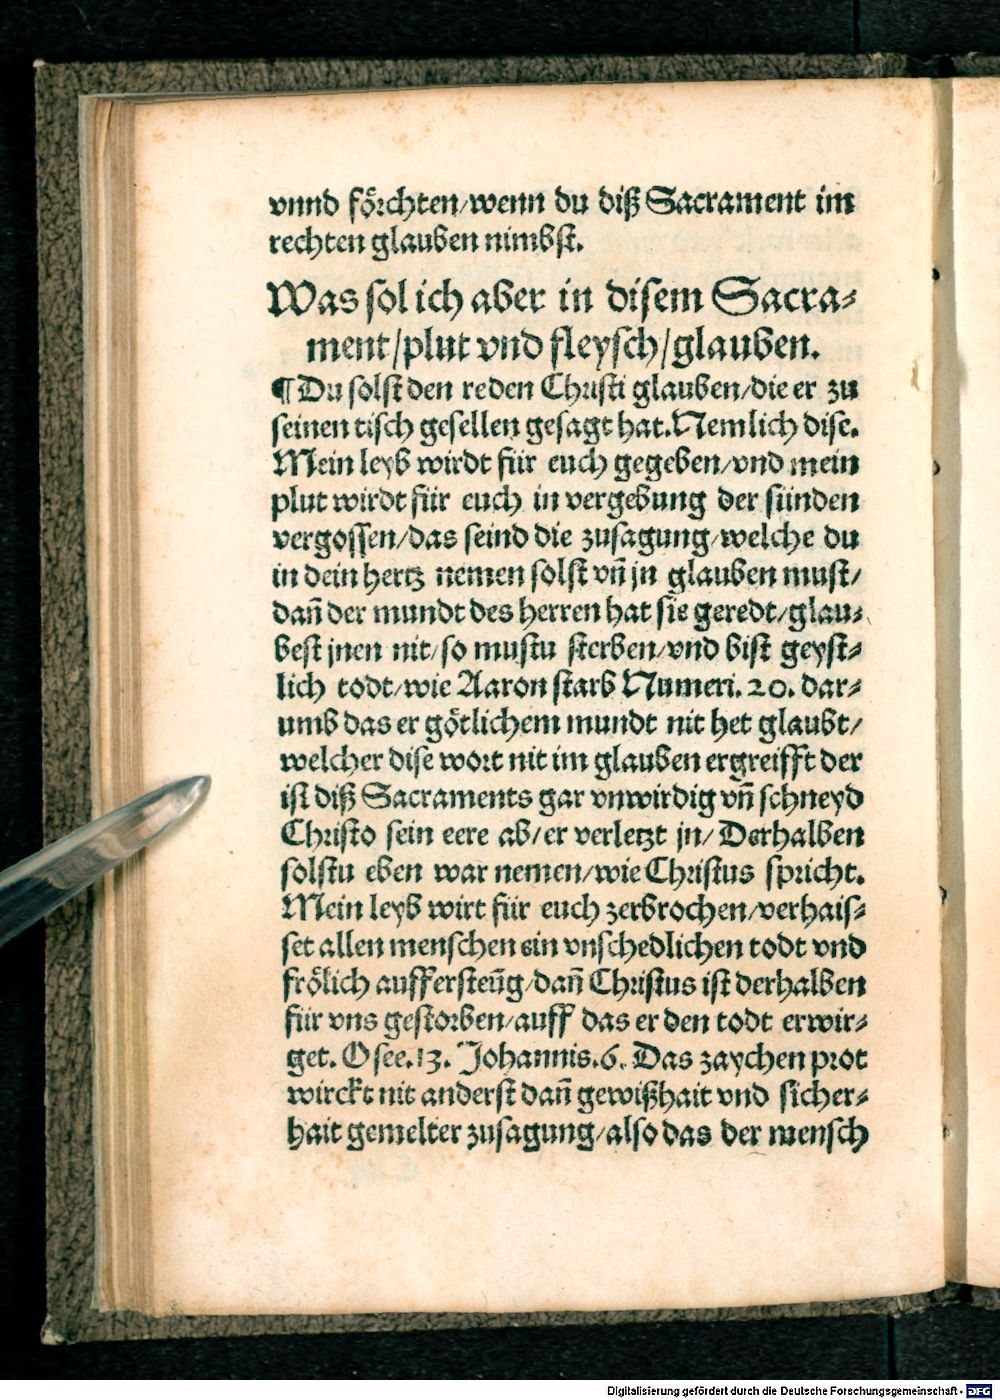 vnnd foͤrchten/wenn du diß Sacrament im
rechten glauben nimbst.
Was sol ich aber in disem Sacra⸗
ment/plut vnd fleysch/glauben.
¶ Du solst den reden Christi glauben/die er zu
seinen tisch gesellen gesagt hat. Nemlich dise.
Mein leyb wirdt für euch gegeben/vnd mein
plut wirdt für euch in vergebung der sünden
vergossen/das seind die zusagung/welche du
in dein hertz nemen solst vñ jn glauben must/
dañ der mundt des herren hat sie geredt/glau⸗
best jnen nit/so mustu sterben/vnd bist geyst⸗
lich todt/wie Aaron starb Numeri. 20. dar⸗
umb das er goͤtlichem mundt nit het glaubt/
welcher dise wort nit im glauben ergreifft der
ist diß Sacraments gar vnwirdig vñ schneyd
Christo sein eere ab/er verletzt jn/Derhalben
solstu eben war nemen/wie Christus spricht.
Mein leyb wirt für euch zerbrochen/verhais⸗
set allen menschen ein vnschedlichen todt vnd
froͤlich auffersteũg/dañ Christus ist derhalben
für vns gestorben/auff das er den todt erwir⸗
get. Osee.13. Johannis.6. Das zaychen prot
wirckt nit anderst dañ gewißhait vnd sicher⸗
hait gemelter zusagung/also das der mensch
Digitalisierung gefördert durch die Deutsche Forschungsgemeinschaft - DFG